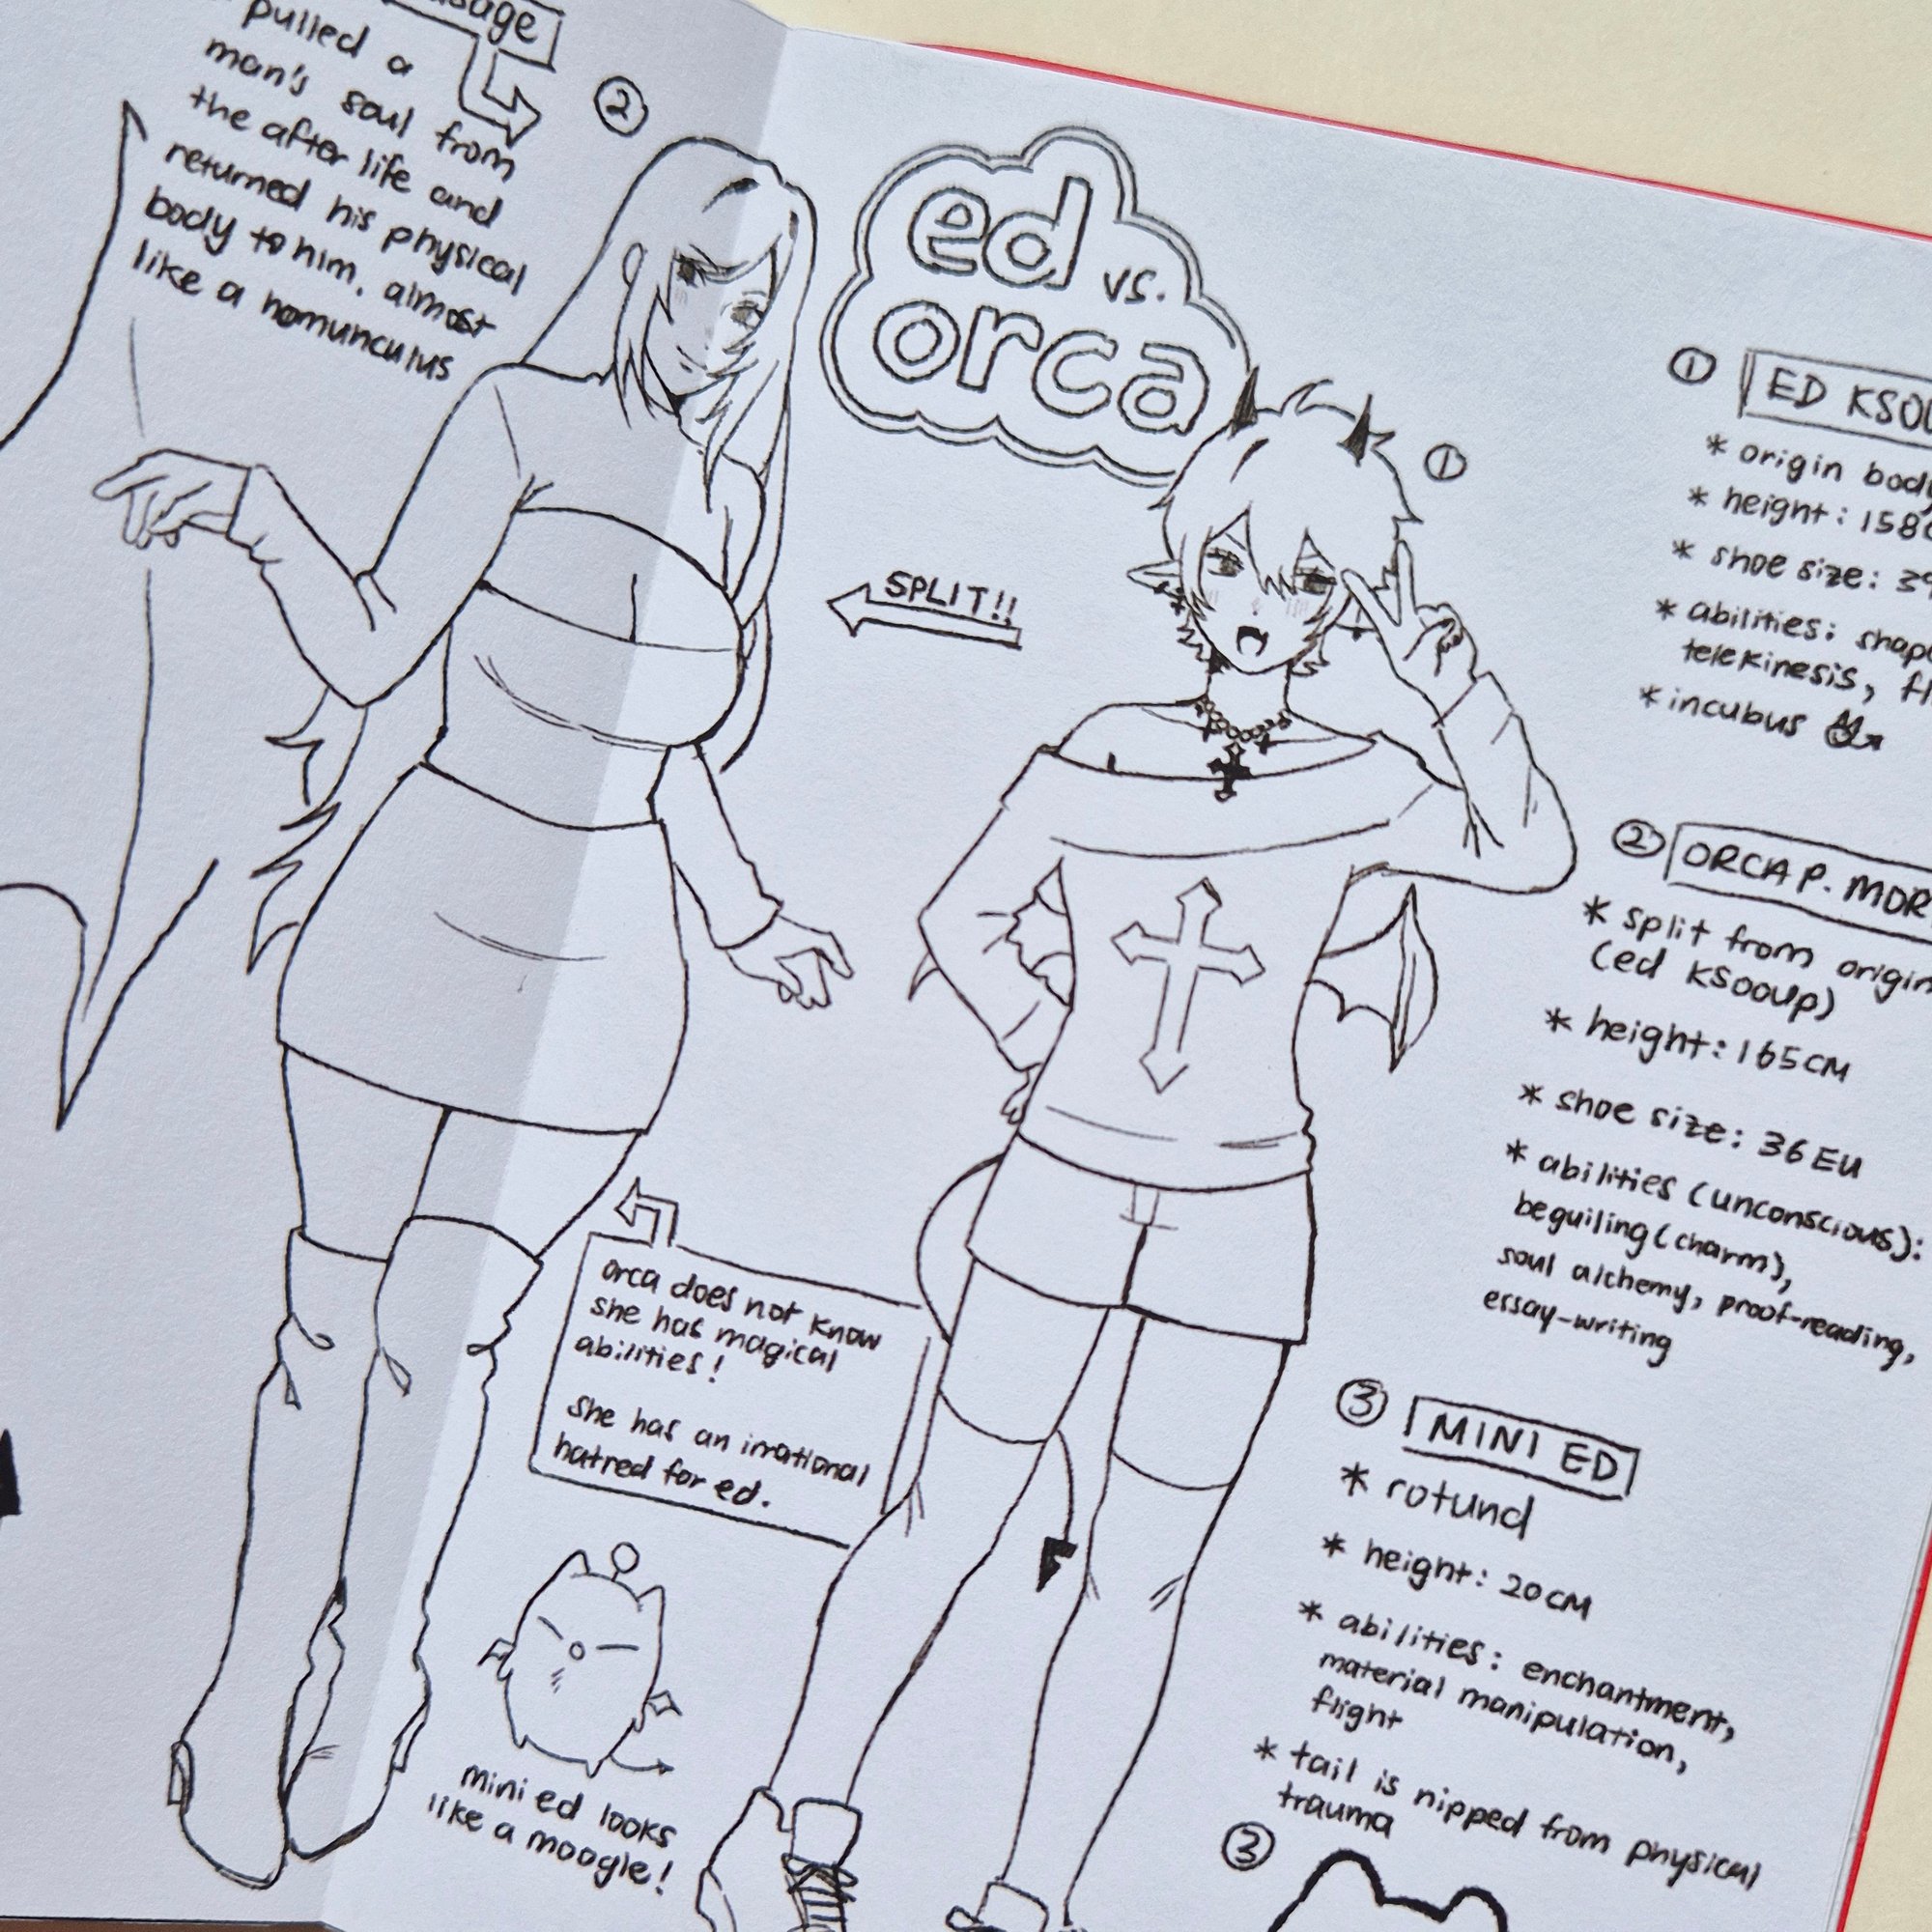 pulled a
man's soul from
the after life and
returned his physical
body to him. almost
like a homunculus
②
ed vs.
orca
①
SPLIT!!
① ED
* origin
* height:
* shoe size:
* abilities:
telekinesis,
* incubus
② ORCA P.
* split from
(ed ksooup)
* height: 165CM
* shoe size: 36 EU
* abilities (unconscious):
beguiling (charm),
soul alchemy, proof-reading,
essay-writing
orca does not know
she has magical
abilities!
she has an irrational
hatred for ed.
③ MINI ED
* rotund
* height: 20CM
* abilities: enchantment,
material manipulation,
flight
* tail is nipped from physical
trauma
mini ed looks
like a moogle!
③